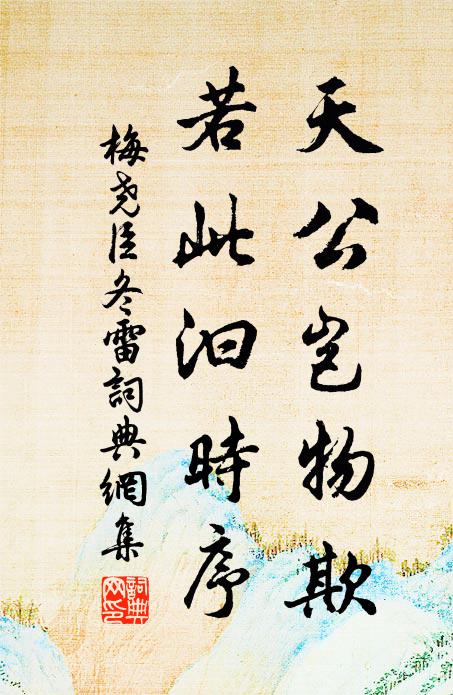 天公豈物欺
若此汩時序
梅堯臣冬雷詞典網集
詞典網印